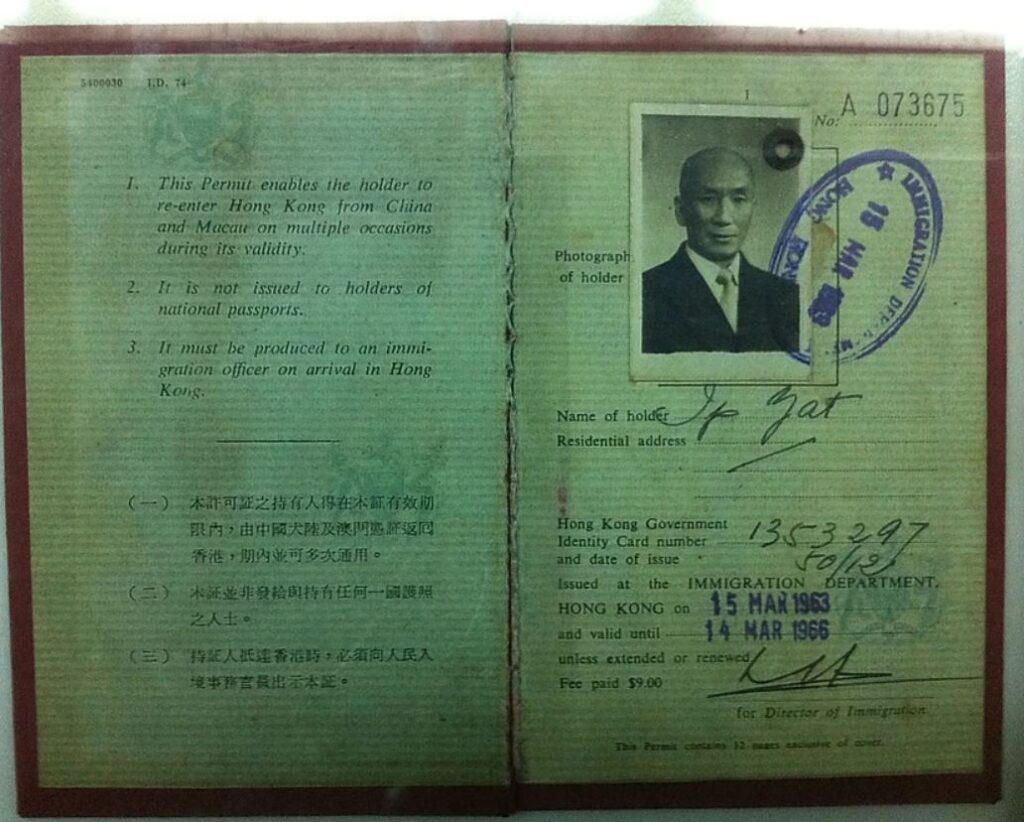 5400030 I.D. 74
1. This Permit enables the holder to
re-enter Hong Kong from China
and Macau on multiple occasions
during its validity.
2. It is not issued to holders of
national passports.
3. It must be produced to an immi-
gration officer on arrival in Hong
Kong.
(一) 本許可証之持有人得在本証有效期
限內，由中國大陸及澳門憑証返回
香港，期內並可多次通用。
(二) 本証並非發給與持有任何一國護照
之人士。
(三) 持証人抵達香港時，必須向人民入
境事務官員出示本証。
1
No: A 073675
IMMIGRATION
HONG KONG
15 MAR 1963
Photograph
of holder
Name of holder Ip Yat
Residential address
Hong Kong Government
Identity Card number 1353297
and date of issue
Issued at the IMMIGRATION DEPARTMENT,
HONG KONG on 15 MAR 1963
and valid until 14 MAR 1966
unless extended or renewed
Fee paid $9.00
for Director of Immigration
This Permit contains 32 pages exclusive of cover.